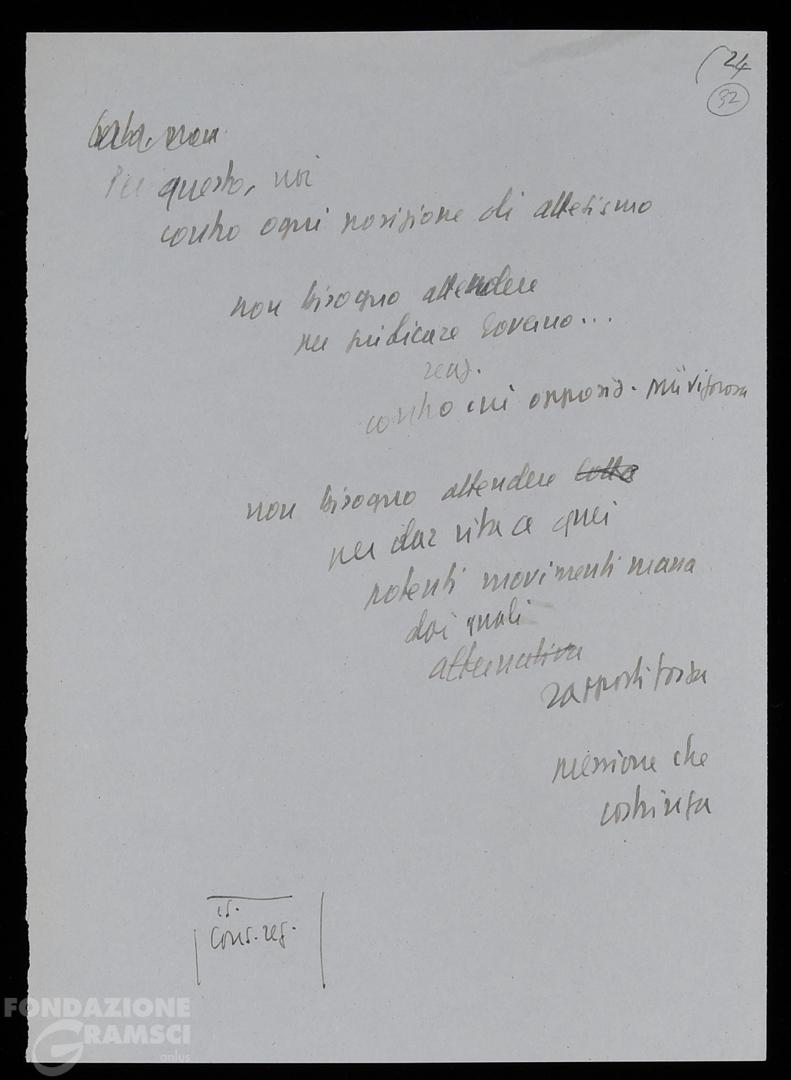 24
32
Per questo, noi
contro ogni posizione di attesismo
non bisogna attendere
per giudicare Governo...
reag.
contro cui opposiz. più vigorosa
non bisogna attendere lotta
per dar vita a quei
potenti movimenti massa
dai quali
alternativa
rapporti forza
pressione che
costringa
is.
Cons. reg.
FONDAZIONE
GRAMSCI
onlus